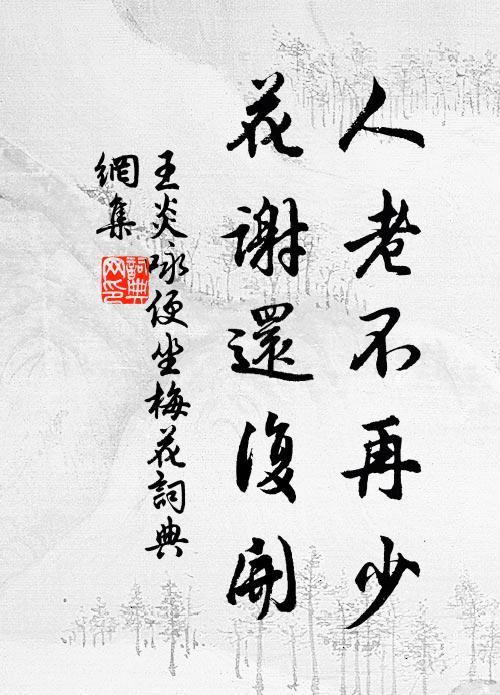 人老不再少
花謝還復開
王炎咏便坐梅花詞典
網集
詞典
网印